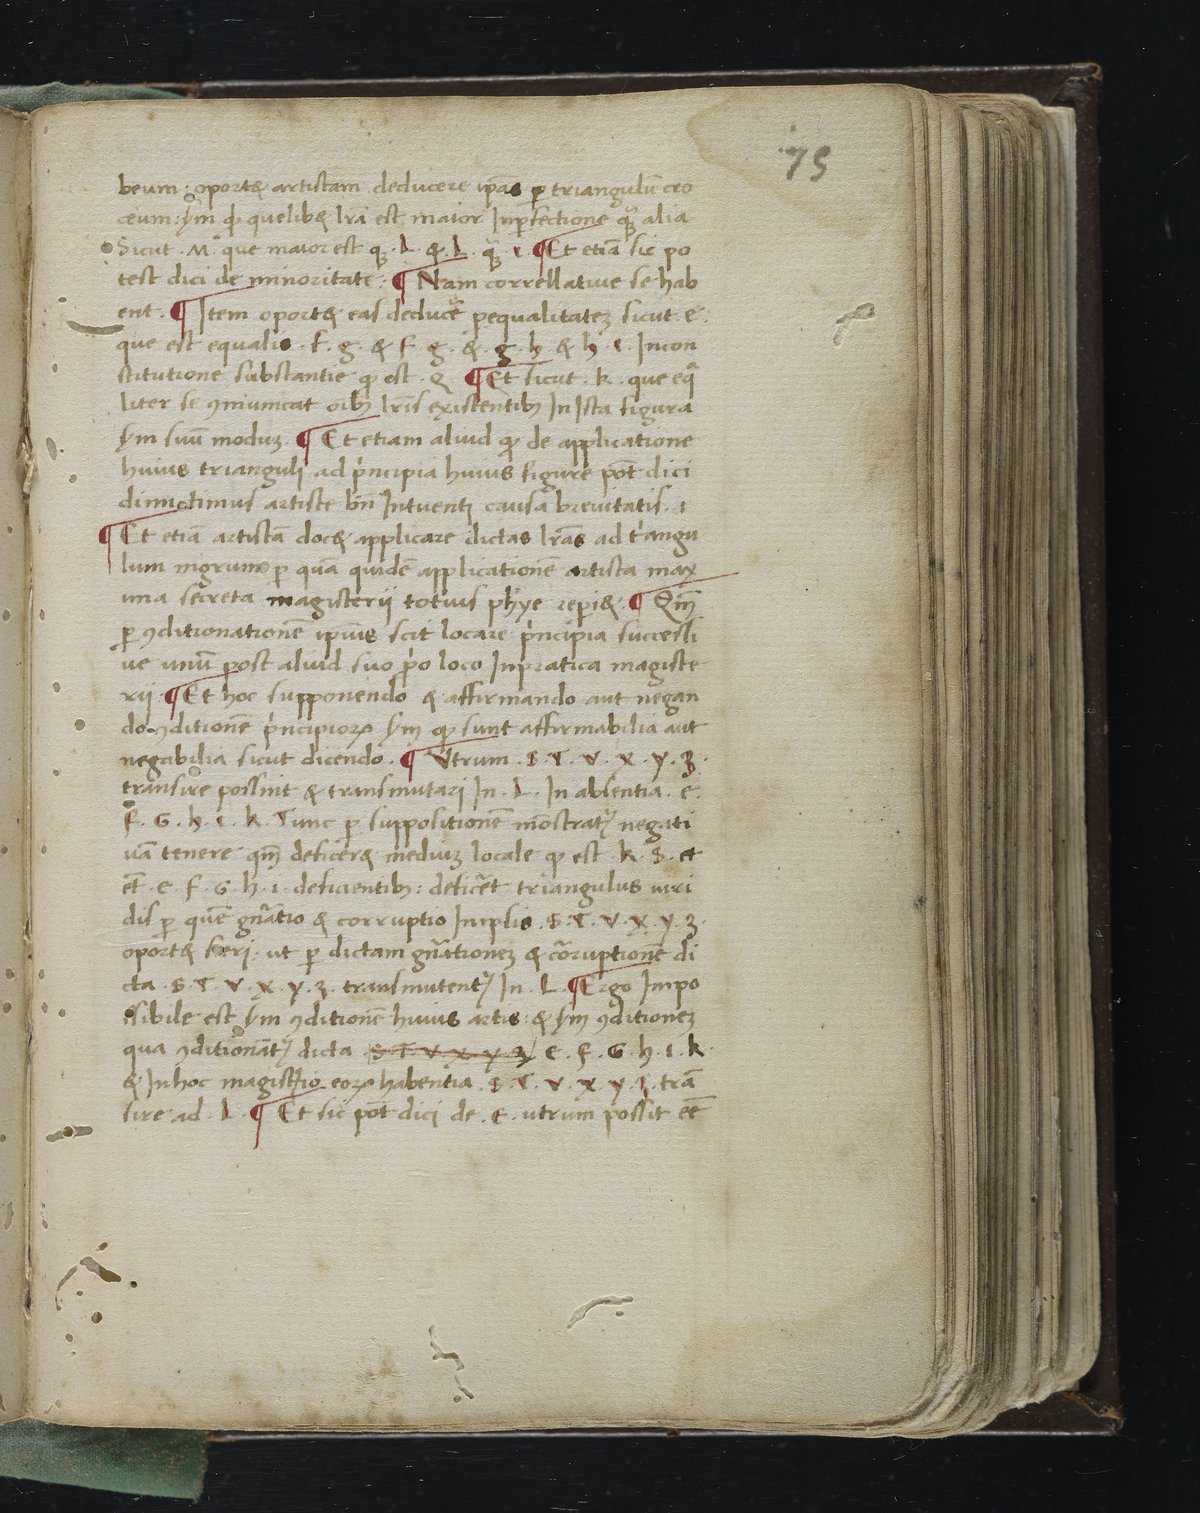 75
beum: oportꝫ artistam deducere ip̄as ꝑ triangulū cro
ceum: ẜm ꝙ quelibꝫ lr̄a est maior Inperfectione qᷓꝫ alia
Sicut . M . que maior est qᷓꝫ . I . & . L . qᷓꝫ . ¶ Et etiā sic po
test dici de minoritate : ¶ Nam correllatiue se hab
ent . ¶ Item oportꝫ eas deducẽ pequalitateꝫ sicut . e .
que est equalis . f . g . & f . g . & . g . h . & h . i . Incon
stitutione substantie ꝙ est . Q . ¶ Et sicut . k . que eq̄
liter se ꝯmunicat oībꝫ lr̄is existentibꝫ In Ista figura
ẜm suū moduꝫ . ¶ Et etiam aliud ꝙ de applicatione
huius trianguli ad pͥncipia huius figure pōt dici
dimictimus artiste bn̄ Intuenti causa breuitatis .
¶ Et etiā artistā docꝫ applicare dictas lr̄as ad tͥangu
lum nigrum ꝑ quā quidē applicationē artista max
ima secreta magisterii totius phỹe reperiꝫ . ¶ Qm̄
ꝑ ꝯditionationē ipsius scit locare pͥncipia successi
ue unū post aliud suo pͥo loco Inpratica magiste
rii . ¶ Et hoc supponendo & affirmando aut negan
do ꝯditionē pͥncipioꝝ ẜm ꝙ sunt affirmabilia aut
negabilia sicut dicendo . ¶ Vtrum . S . T . V . X . y . Z .
transire possint & transmutari In . L . In absentia . e .
f . G . h . i . k . Tunc ꝑ suppositionē mōstratᷣ negati
uā tenere qm̄ deficerꝫ mediuꝫ locale ꝙ est . k . S . et
et̄ . e . f . G . h . i . deficientibꝫ : deficet̄ triangulus uiri
dis ꝑ quē gn̄atio & corruptio Inip̄is . S . T . V . X . y . Z .
oportꝫ fieri . ut ꝑ dictam gn̄ationeꝫ & corruptionē di
cta . S . T . V . X . y . Z . transmutentᷣ In . L . ¶ Ergo Inpo
ssibile est ẜm ꝯditionē huius artis : & ẜm ꝯditioneꝫ
qua ꝯditionātᷣ dicta . S . T . V . X . y . Z . e . f . G . h . i . k .
& Inhoc magisterio eoꝝ habentia . S . T . V . X . y . Z . trā
sire ad . L . ¶ Et sic pōt dici de . e . utrum possit eē